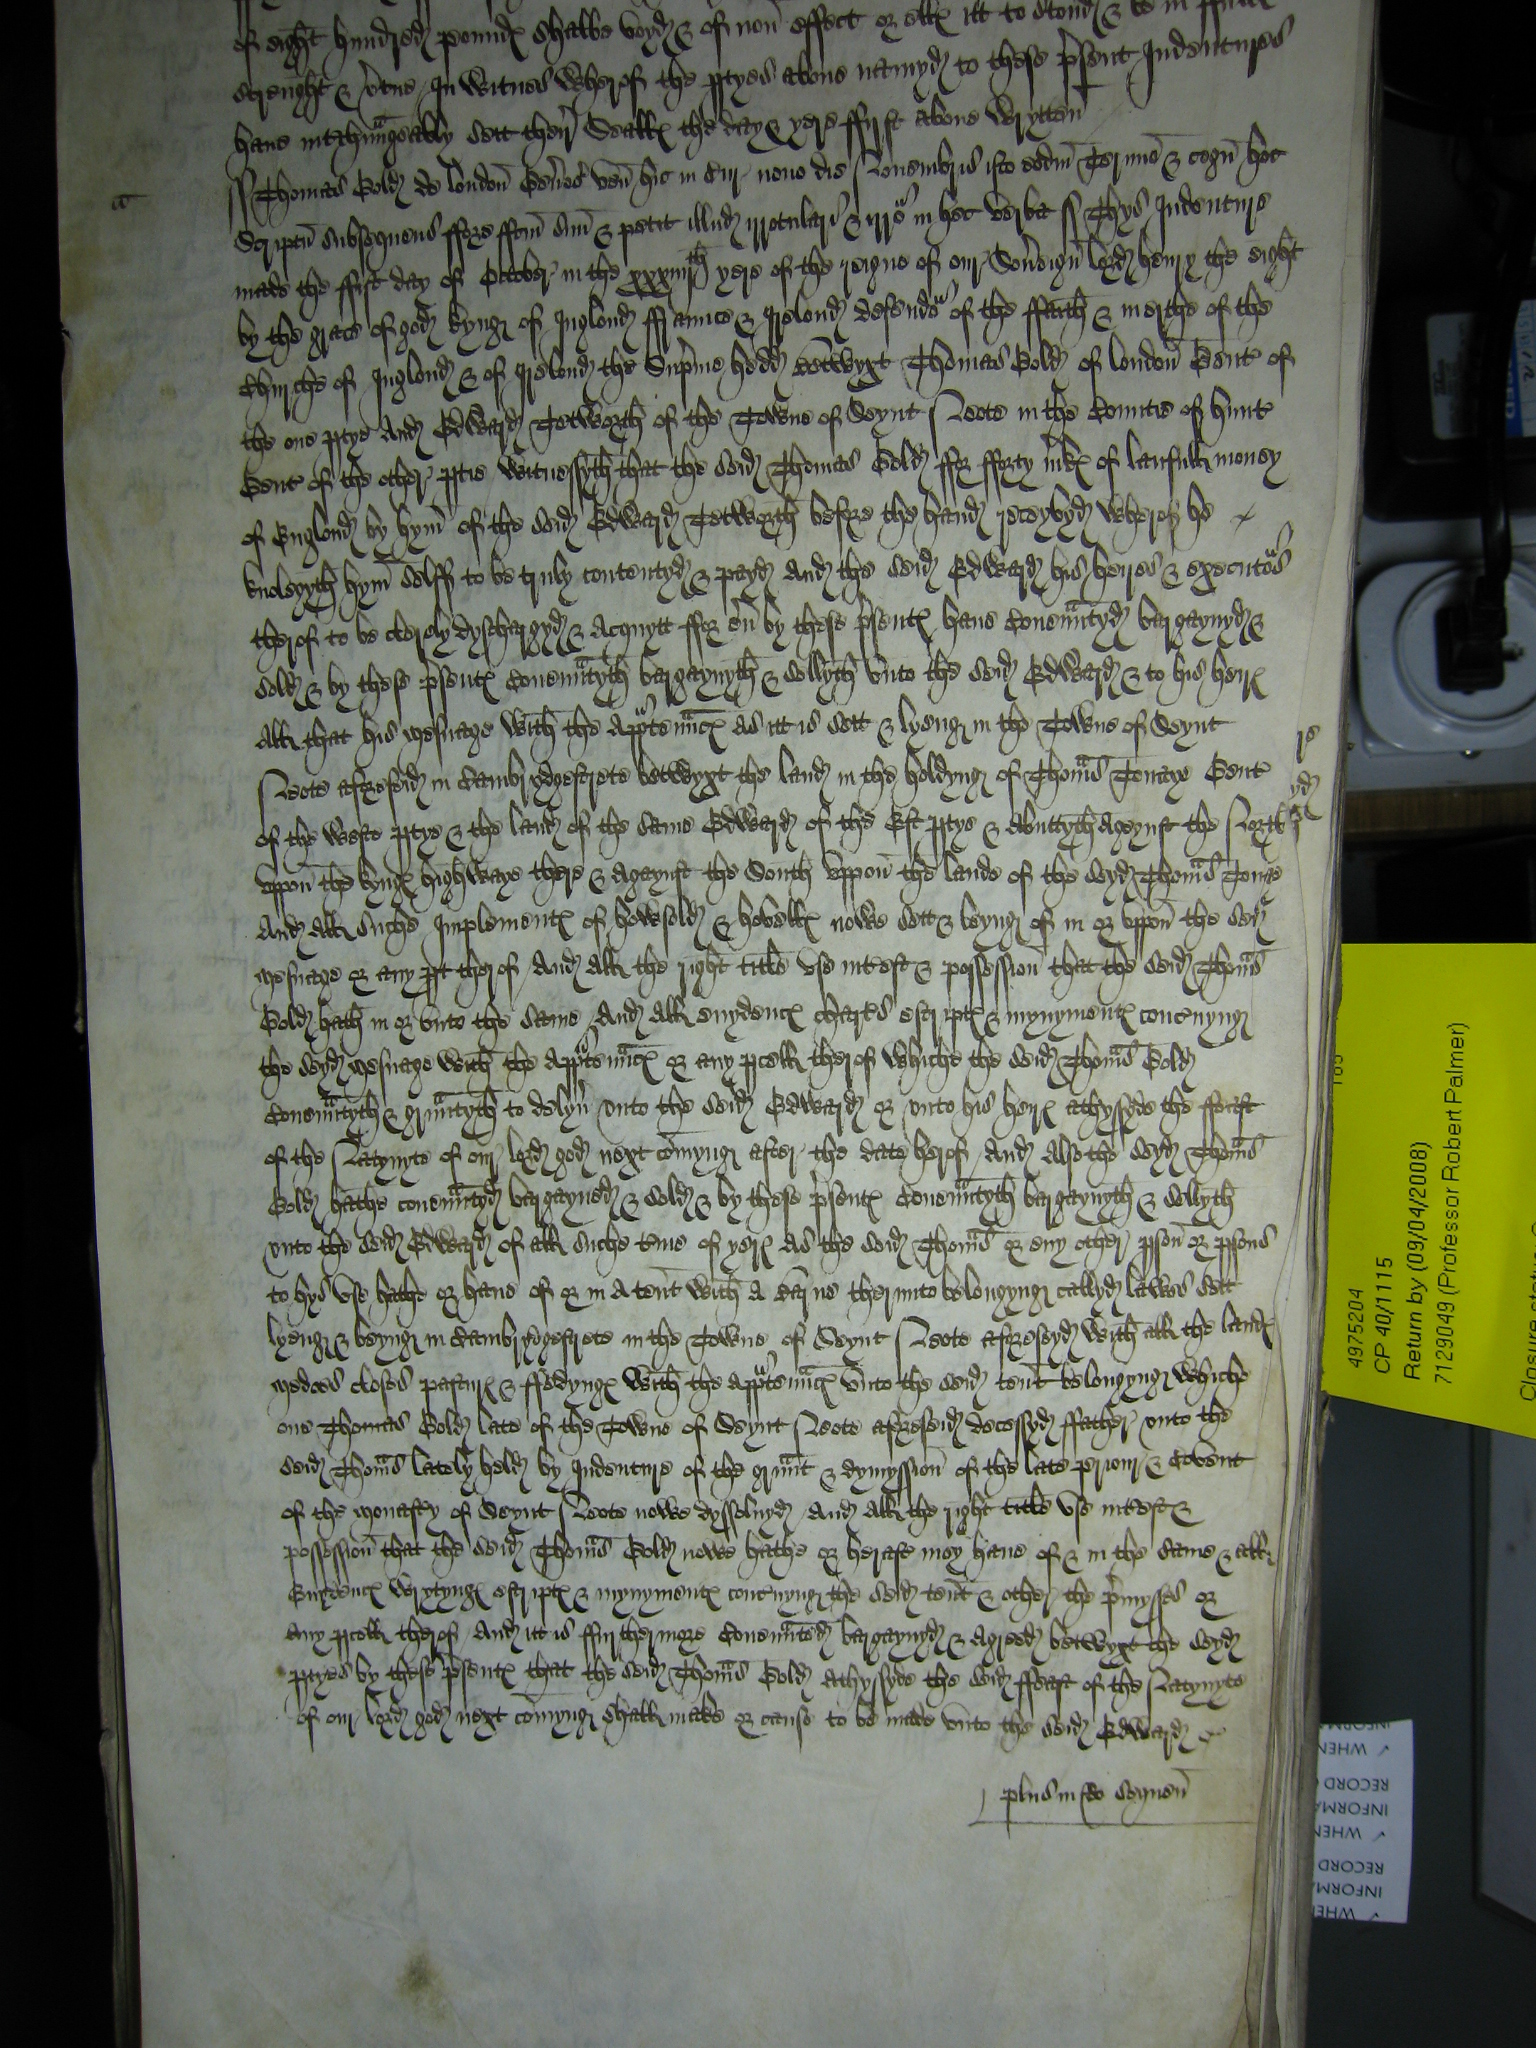 of eight hundred pound shalbe voyd & of non effect or elles itt to stond & be in
strenght & vtue In Witnes Wherof the ptyes aboue namyd to these psent Indentures
haue intchaungeably sett ther Sealles the day & yere ffirst aboue Wrytten
Thomas Gold de london Gen'os ven' hic in Cur nono die Novembris isto eodm Termino & cogn' hoc
Scriptu subsequens ffore fcm suu & petit illud irrotulari & irro in hec verba ss Thys Indenture
made the first day of October in the xxxiiij th yere of the reigne of our Souereign lord henry the eight
by the grace of god kyng of Inglond ffraunce & Irelond defendor of the ffaith & in erthe of the
Churche of Inglond & of Irelond the Supme hedd betwyxt Thomas Gold of london Gent of
the one ptye And Edward Tetworth of the Towne of Seynt Neote in the Countie of hunt
Gent of the other ptie Witnessyth that the seid Thomas Gold ffor fforty mks of laufull money
of Englond by hym of the seid Edward Tetworth before the hand receyvyd Wherof he
knolegyth hym selff to be truly contentyd & payd And the seid Edward his heires & executors
therof to be clerely dyschargyd & Acquytt ffor eu' by these psents haue Couenntyd bargaynyd &
sold & by these psents Couenntyth bargaynyth & sellyth vnto the seid Edward & to his heires
All that his mesuage With the Apptennces as itt is sett & lyeng in the Towne of Seynt
Neote aforeseid in Cambrydgestrete betwyxt the land in the holdyng of Thoms Tomaye Gent
of the Weste ptye & the land of the same Edward of the Est ptye & Abuttyth Ageynst the North
vppon the kynges highwaye there & Agaynst the South vppon the lande of the seyd Thoms
And All suche Implementes of howsold & hovelles nowe sett & beyng of in or vppon the seid
mesuage or any pt therof And All the right title vse intrest & possession that the seid Thoms
Gold hath in or vnto the same And All euydences charters escriptes & mynymentes concnyng
the seyd mesuage With the Apptennces or any pcell therof Whiche the seid Thoms Gold
Couenntyth & grauntyth to delyu' vnto the seid Edward or vnto his heires Athyssyde the ffeast
of the Natyvyte of our lord god next comyng after the date herof And Also the seyd Thoms
Gold hathe couenntyd bargayned & sold & by these psents Couenntyth bargaynyth & sellyth
vnto the seid Edward of all suche tme of yeres As the seid Thoms or eny other pson or psons
to hys vse hathe or haue of or in A tent With A barne therunto belongyng callyd lawes sett
lyeng & beyng in Cambrydgestrete in the Towne of Seynt Neote aforeseyd With all the landes
medoes closes pastures & ffedynges With the Apptennces vnto the seid tent belongyng Whiche
one Thomas Gold late of the Towne of Seynt Neote aforeseid decessyd ffather vnto the
seid Thoms lately held by Indenture of the graunt & dymyssion of the late priour & Covent
of the monastry of Seynt Neote nowe dyssoluyd And All the right title vse intrest &
possession that the seid Thoms Gold nowe hathe or heraft may haue of & in the same & all
Euydences Wrytynges escriptes & mynymentes concnyng the seid tent & other the pmysses or
Any pcell therof And itt is ffurthermore Couennted bargaynyd & Agreed betwyxt the seyd
ptyes by these psents that the seid Thoms Gold Athyssyde the seid ffeast of the Natyvyte
of our lord god next comyng shall make or cause to be made vnto the seid Edward
plus in do sequen
4975204
CP 40/1115
Return by (09/04/2008)
7129049 (Professor Robert Palmer)